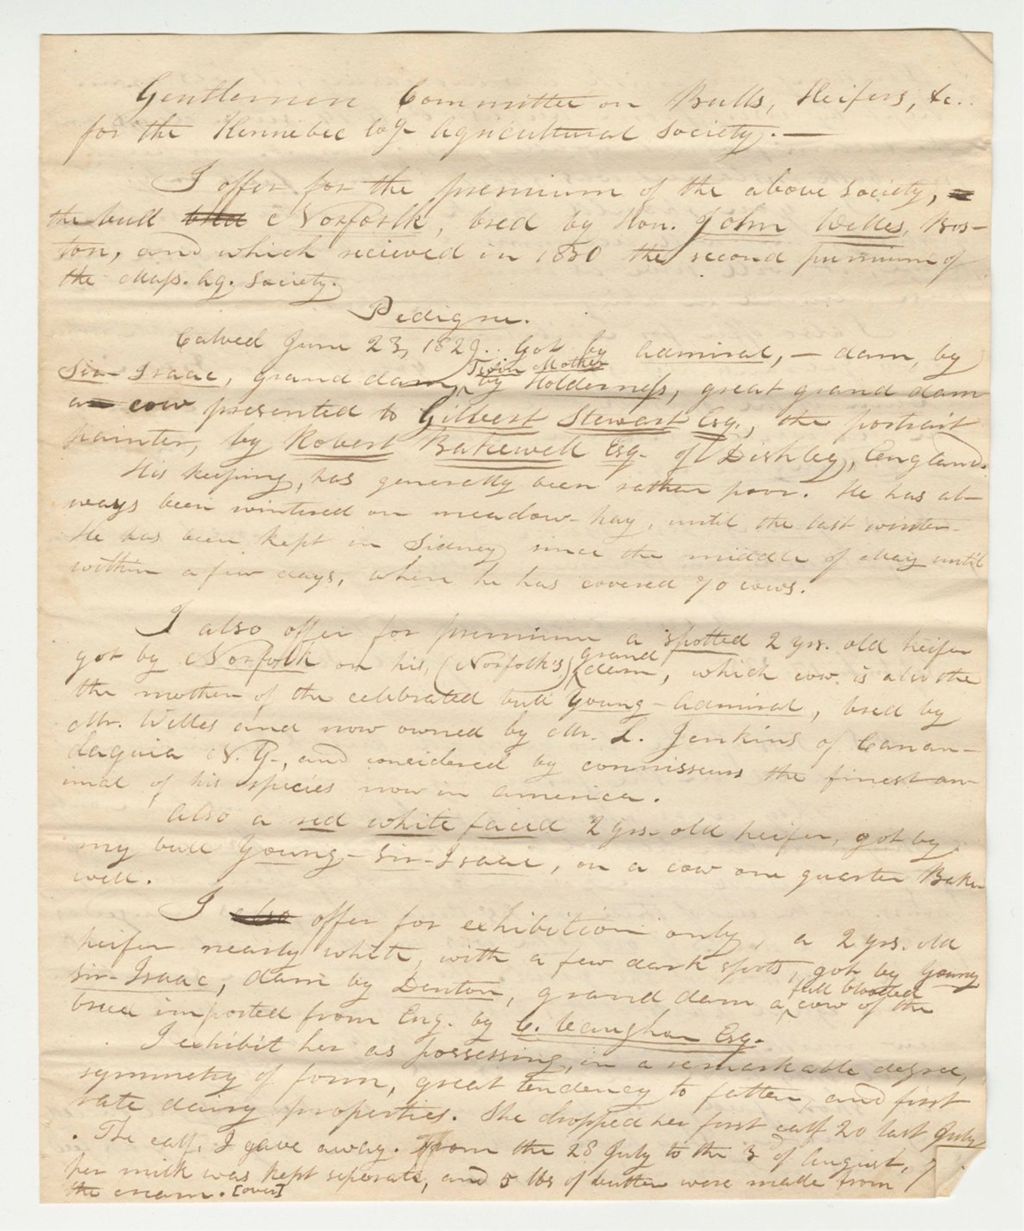 Gentlemen Committee on Bulls, Heifers, &c.
for the Kennebec Coy Agricultural Society. —
I offer for the premium of the above Society, =
the bull Norfolk, bred by Hon. John Welles, Bos-
ton, and which recieved in 1830 the second premium of
the Mass. Ag. Society.
Pedigree.
Calved June 23, 1829. Got by Admiral, — dam, by
Twin Mother
Sir-Isaac, grand dam, by Holderness, great grand dam
a cow presented to Gilbert Stewart Esq., the portrait
painter, by Robert Bakewell Esq. of Dishley, England.
His keeping, has generally been rather poor. He has al-
ways been wintered on meadow-hay, until the last winter.
He has been kept in Sidney since the middle of May until
within a few days, where he has covered 70 cows.
I also offer for premium a spotted 2 yrs. old heifer
grand
got by Norfolk on his, (Norfolk's) dam, which cow is also the
the mother of the celebrated bull Young-Admiral, bred by
Mr. Welles and now owned by Mr. L. Jenkins of Canan-
daguia N.Y., and considered by connisseurs the finest an-
imal of his species now in America.
Also a red white faced 2 yrs. old heifer, got by
my bull Young-Sir-Isaac, on a cow one quarter Bake-
well.
I also offer for exhibition only, a 2 yrs. old
heifer nearly white, with a few dark spots, got by Young
full blooded
Sir-Isaac, dam by Denton, grand dam a cow of the
breed imported from Eng. by C. Vaughan Esq.
I exhibit her as possessing, in a remarkable degree,
symmetry of form, great tendency to fatten, and first
rate dairy properties. She dropped her first calf 20 last July
. The calf, I gave away. From the 28 July to the 3 of August,
her milk was kept seperate, and 5 lbs of butter were made from
the cream. [over]